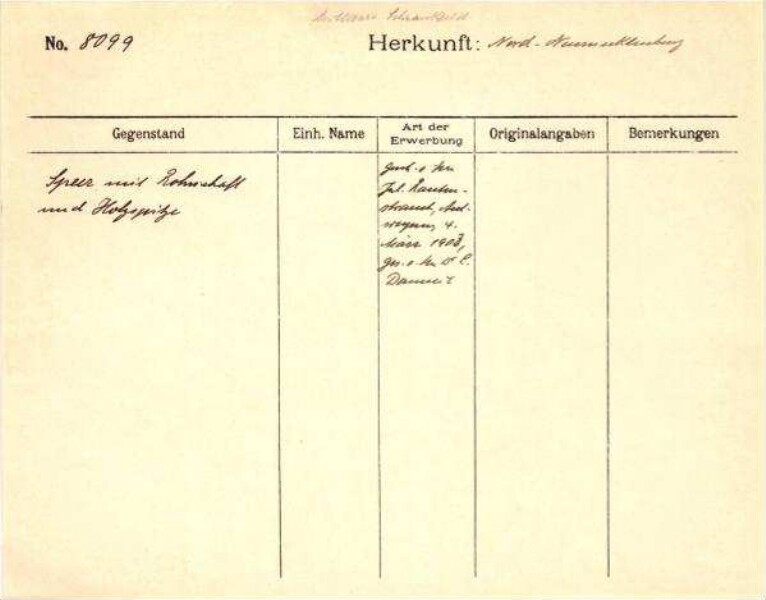 Schrankfeld
No. 8099
Herkunft: Nord-Neumecklenburg
Gegenstand
Einh. Name
Art der
Erwerbung
Originalangaben
Bemerkungen
Speer mit Rohrschaft
und Holzspitze
Jul. Rauten-
strauch, Ant-
werpen, 4.
März 1903,
ges. v. Hn Dr E.
Damm